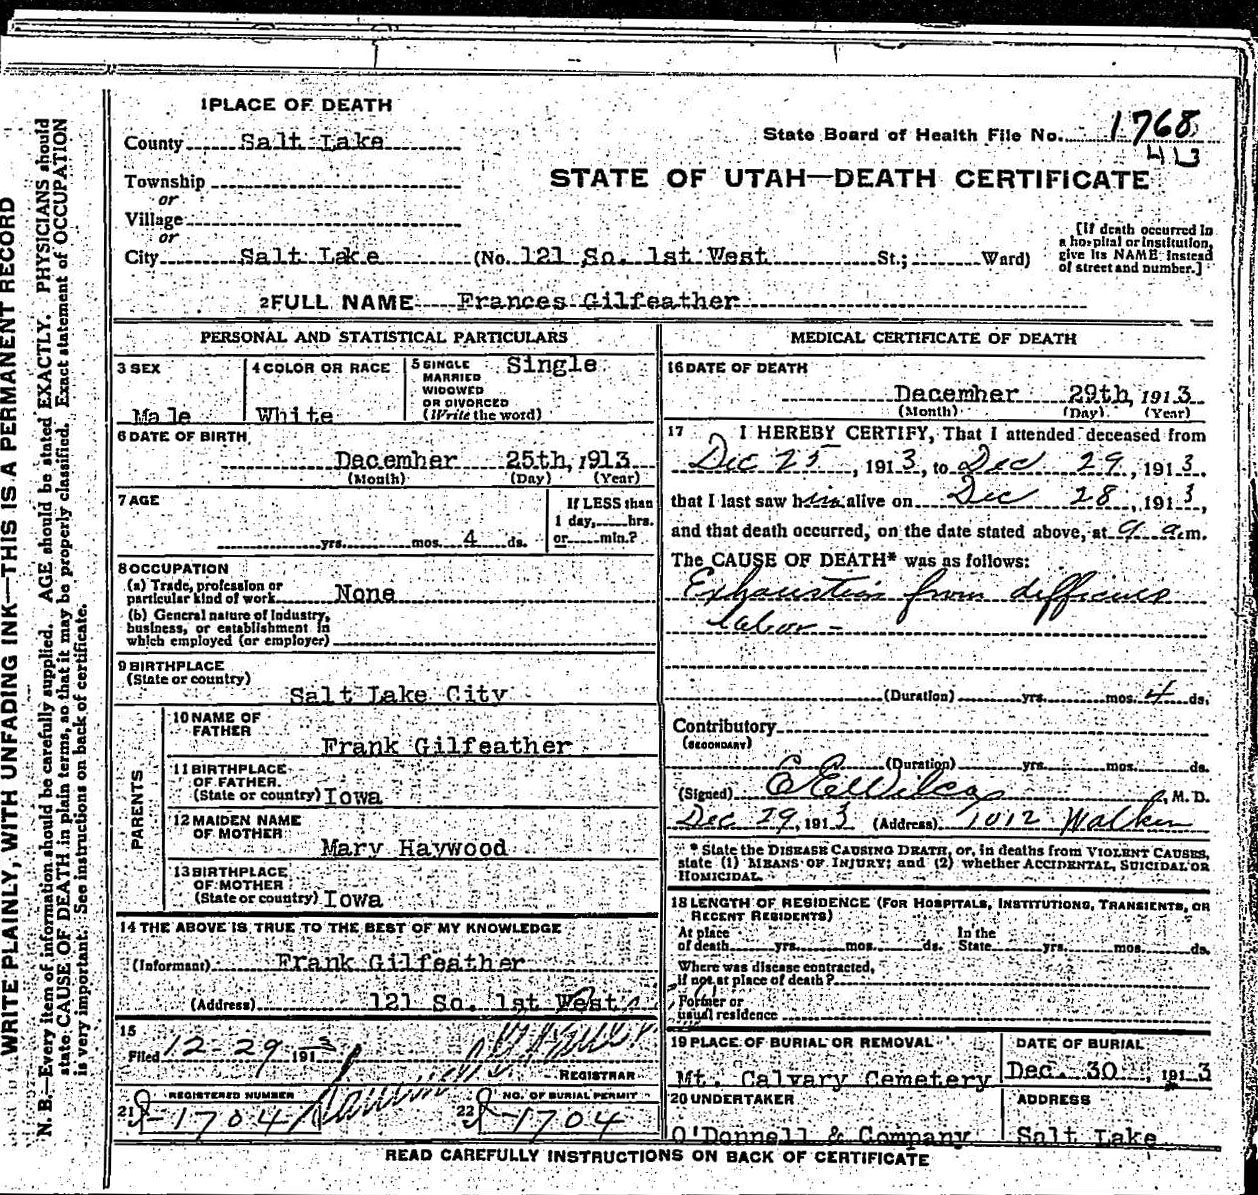 WRITE PLAINLY, WITH UNFADING INK—THIS IS A PERMANENT RECORD
N. B.—Every item of information should be carefully supplied. AGE should be stated EXACTLY. PHYSICIANS should
state CAUSE OF DEATH in plain terms, so that it may be properly classified. Exact statement of OCCUPATION
is very important. See instructions on back of certificate.
1 PLACE OF DEATH
County Salt Lake
State Board of Health File No. 1768
413
Township
or
Village
or
STATE OF UTAH—DEATH CERTIFICATE
City Salt Lake (No. 121 So. 1st West St.; Ward)
[If death occurred in
a hospital or institution,
give its NAME instead
of street and number.]
2 FULL NAME Frances Gilfeather
PERSONAL AND STATISTICAL PARTICULARS
3 SEX
Male
4 COLOR OR RACE
White
5 SINGLE
MARRIED
WIDOWED
OR DIVORCED
(Write the word)
Single
6 DATE OF BIRTH
December 25th, 1913
(Month) (Day) (Year)
7 AGE
yrs. mos. 4 ds.
If LESS than
1 day, hrs.
or min.?
8 OCCUPATION
(a) Trade, profession or
particular kind of work None
(b) General nature of industry,
business, or establishment in
which employed (or employer)
9 BIRTHPLACE
(State or country)
Salt Lake City
PARENTS
10 NAME OF
FATHER
Frank Gilfeather
11 BIRTHPLACE
OF FATHER
(State or country) Iowa
12 MAIDEN NAME
OF MOTHER
Mary Haywood
13 BIRTHPLACE
OF MOTHER
(State or country) Iowa
14 THE ABOVE IS TRUE TO THE BEST OF MY KNOWLEDGE
(Informant) Frank Gilfeather
(Address) 121 So. 1st West
15
Filed 12-29 1913
REGISTRAR
REGISTERED NUMBER
21 J-1704
NO. OF BURIAL PERMIT
22 J-1704
MEDICAL CERTIFICATE OF DEATH
16 DATE OF DEATH
December 29th, 1913
(Month) (Day) (Year)
17 I HEREBY CERTIFY, That I attended deceased from
Dec 25, 1913, to Dec 29, 1913,
that I last saw him alive on Dec 28, 1913,
and that death occurred, on the date stated above, at 9 a.m.
The CAUSE OF DEATH* was as follows:
Exhaustion from difficult
labor -
(Duration) yrs. mos. 4 ds.
Contributory
(SECONDARY)
(Duration) yrs. mos. ds.
(Signed) E E Wilcox, M. D.
Dec 29, 1913 (Address) 1012 Walker
* State the DISEASE CAUSING DEATH, or, in deaths from VIOLENT CAUSES,
state (1) MEANS OF INJURY; and (2) whether ACCIDENTAL, SUICIDAL OR
HOMICIDAL.
18 LENGTH OF RESIDENCE (FOR HOSPITALS, INSTITUTIONS, TRANSIENTS, OR
RECENT RESIDENTS)
At place
of death yrs. mos. ds.
In the
State yrs. mos. ds.
Where was disease contracted,
if not at place of death?
Former or
usual residence
19 PLACE OF BURIAL OR REMOVAL
Mt. Calvary Cemetery
DATE OF BURIAL
Dec. 30, 1913
20 UNDERTAKER
O'Donnell & Company
ADDRESS
Salt Lake
READ CAREFULLY INSTRUCTIONS ON BACK OF CERTIFICATE